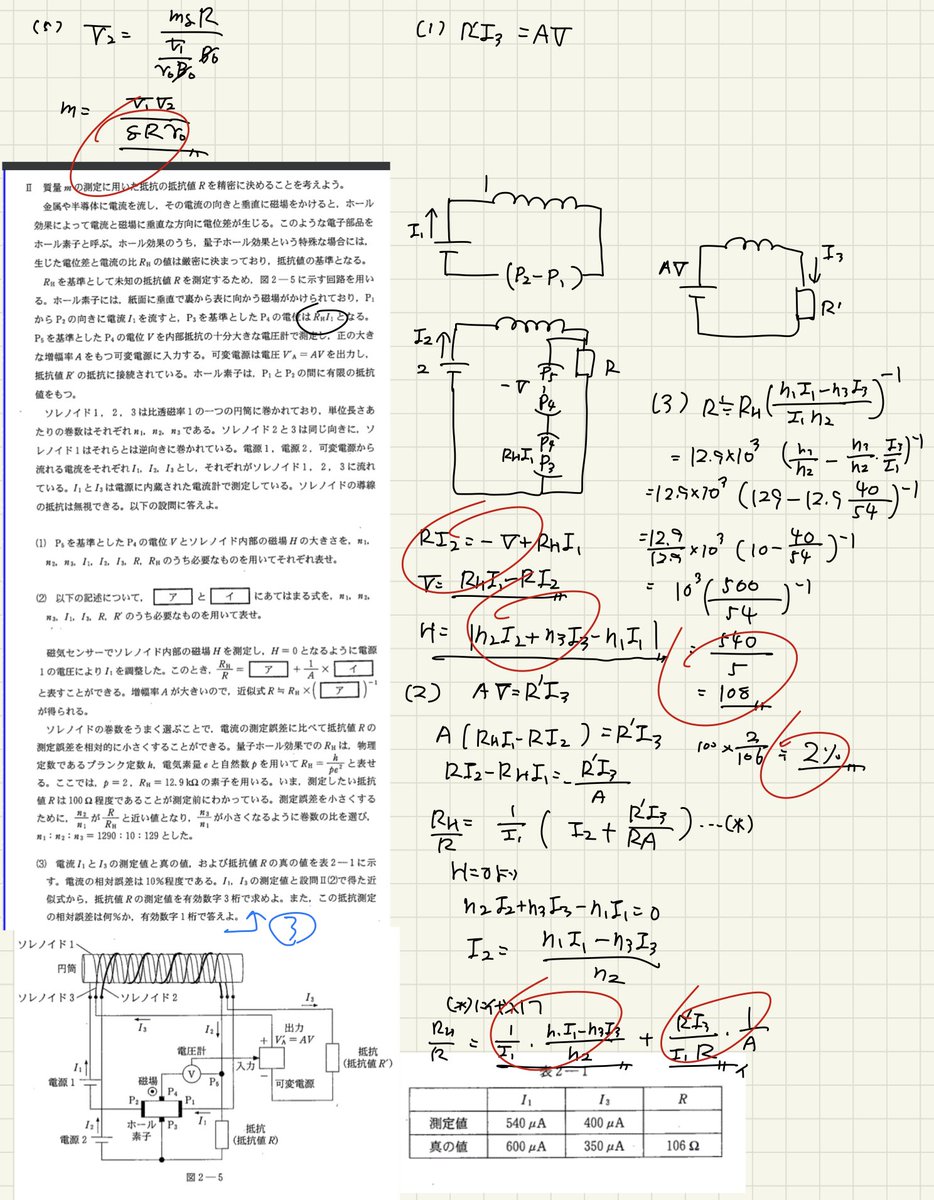 (5) V₂ = mgR / (V₁/(r₀B₀) B₀)
m = V₁V₂ / gRr₀
(1) R'I₃ = AV
Ⅱ 質量 m の測定に用いた抵抗の抵抗値 R を精密に決めることを考えよう。
金属や半導体に電流を流し，その電流の向きと垂直に磁場をかけると，ホール
効果によって電流と磁場に垂直な方向に電位差が生じる。このような電子部品を
ホール素子と呼ぶ。ホール効果のうち，量子ホール効果という特殊な場合には，
生じた電位差と電流の比 RH の値は厳密に決まっており，抵抗値の基準となる。
RH を基準として未知の抵抗値 R を測定するため，図2－5に示す回路を用い
る。ホール素子には，紙面に垂直で裏から表に向かう磁場がかけられており，P₁
から P₂ の向きに電流 I₁ を流すと，P₃ を基準とした P₄ の電位は RHI₁ となる。
P₅ を基準とした P₄ の電位 V を内部抵抗の十分大きな電圧計で測定し，正の大き
な増幅率 A をもつ可変電源に入力する。可変電源は電圧 V'A = AV を出力し，
抵抗値 R' の抵抗に接続されている。ホール素子は，P₁ と P₂ の間に有限の抵抗
値をもつ。
ソレノイド1，2，3は比透磁率1の一つの円筒に巻かれており，単位長さあ
たりの巻数はそれぞれ n₁，n₂，n₃ である。ソレノイド2と3は同じ向きに，ソ
レノイド1はそれらとは逆向きに巻かれている。電源1，電源2，可変電源から
流れる電流をそれぞれ I₁，I₂，I₃ とし，それぞれがソレノイド1，2，3に流れ
ている。I₁ と I₃ は電源に内蔵された電流計で測定している。ソレノイドの導線
の抵抗は無視できる。以下の設問に答えよ。
(1) P₅ を基準とした P₄ の電位 V とソレノイド内部の磁場 H の大きさを，n₁，
n₂，n₃，I₁，I₂，I₃，R，RH のうち必要なものを用いてそれぞれ表せ。
(2) 以下の記述について，ア と イ にあてはまる式を，n₁，n₂，
n₃，I₁，I₃，R，R' のうち必要なものを用いて表せ。
磁気センサーでソレノイド内部の磁場 H を測定し，H = 0 となるように電源
1の電圧により I₁ を調整した。このとき，RH/R = ア + 1/A × イ
と表すことができる。増幅率 A が大きいので，近似式 R ≒ RH × (ア)⁻¹
が得られる。
ソレノイドの巻数をうまく選ぶことで，電流の測定誤差に比べて抵抗値 R の
測定誤差を相対的に小さくすることができる。量子ホール効果での RH は，物理
定数であるプランク定数 h，電気素量 e と自然数 p を用いて RH = h/pe² と表せ
る。ここでは，p = 2，RH = 12.9 kΩ の素子を用いる。いま，測定したい抵抗
値 R は 100 Ω 程度であることが測定前にわかっている。測定誤差を小さくする
ために，n₂/n₁ が R/RH と近い値となり，n₃/n₁ が小さくなるように巻数の比を選び，
n₁：n₂：n₃ = 1290：10：129 とした。
(3) 電流 I₁ と I₃ の測定値と真の値，および抵抗値 R の真の値を表2－1に示
す。電流の相対誤差は10％程度である。I₁，I₃ の測定値と設問Ⅱ(2)で得た近
似式から，抵抗値 R の測定値を有効数字3桁で求めよ。また，この抵抗測定
の相対誤差は何％か，有効数字1桁で答えよ。
③
ソレノイド1
円筒
ソレノイド3
ソレノイド2
I₃
I₃
I₂
出力
V'A = AV
電圧計
入力
抵抗
(抵抗値 R')
I₁
V
P₅
可変電源
電源1
磁場
P₄
P₂
P₁
I₁
I₂
ホール
素子
P₃
抵抗
(抵抗値 R)
電源2
図2－5
1
I₁
(P₂-P₁)
AV
I₃
R'
I₂
2
P₅
R
-V
P₄
P₄
RHI₁
P₃
RI₂ = -V + RHI₁
V = RHI₁ - RI₂
H = |n₂I₂ + n₃I₃ - n₁I₁|
(2) AV = R'I₃
A(RHI₁ - RI₂) = R'I₃
RI₂ - RHI₁ = -R'I₃/A
RH/R = 1/I₁ (I₂ + R'I₃/RA) …(*)
H=0より
n₂I₂ + n₃I₃ - n₁I₁ = 0
I₂ = (n₁I₁ - n₃I₃)/n₂
(*)に代入して
RH/R = 1/I₁ · (n₁I₁ - n₃I₃)/n₂ + R'I₃/I₁R · 1/A
イ
(3) R ≒ RH ((n₁I₁ - n₃I₃)/I₁n₂)⁻¹
= 12.9×10³ (n₁/n₂ - n₃/n₂ · I₃/I₁)⁻¹
= 12.9×10³ (129 - 12.9 40/54)⁻¹
= 12.9/12.9 ×10³ (10 - 40/54)⁻¹
= 10³ (500/54)⁻¹
= 540/5
= 108
100 × 2/106 ≒ 2%
表2－1
I₁ I₃ R
測定値 540 μA 400 μA
真の値 600 μA 350 μA 106 Ω